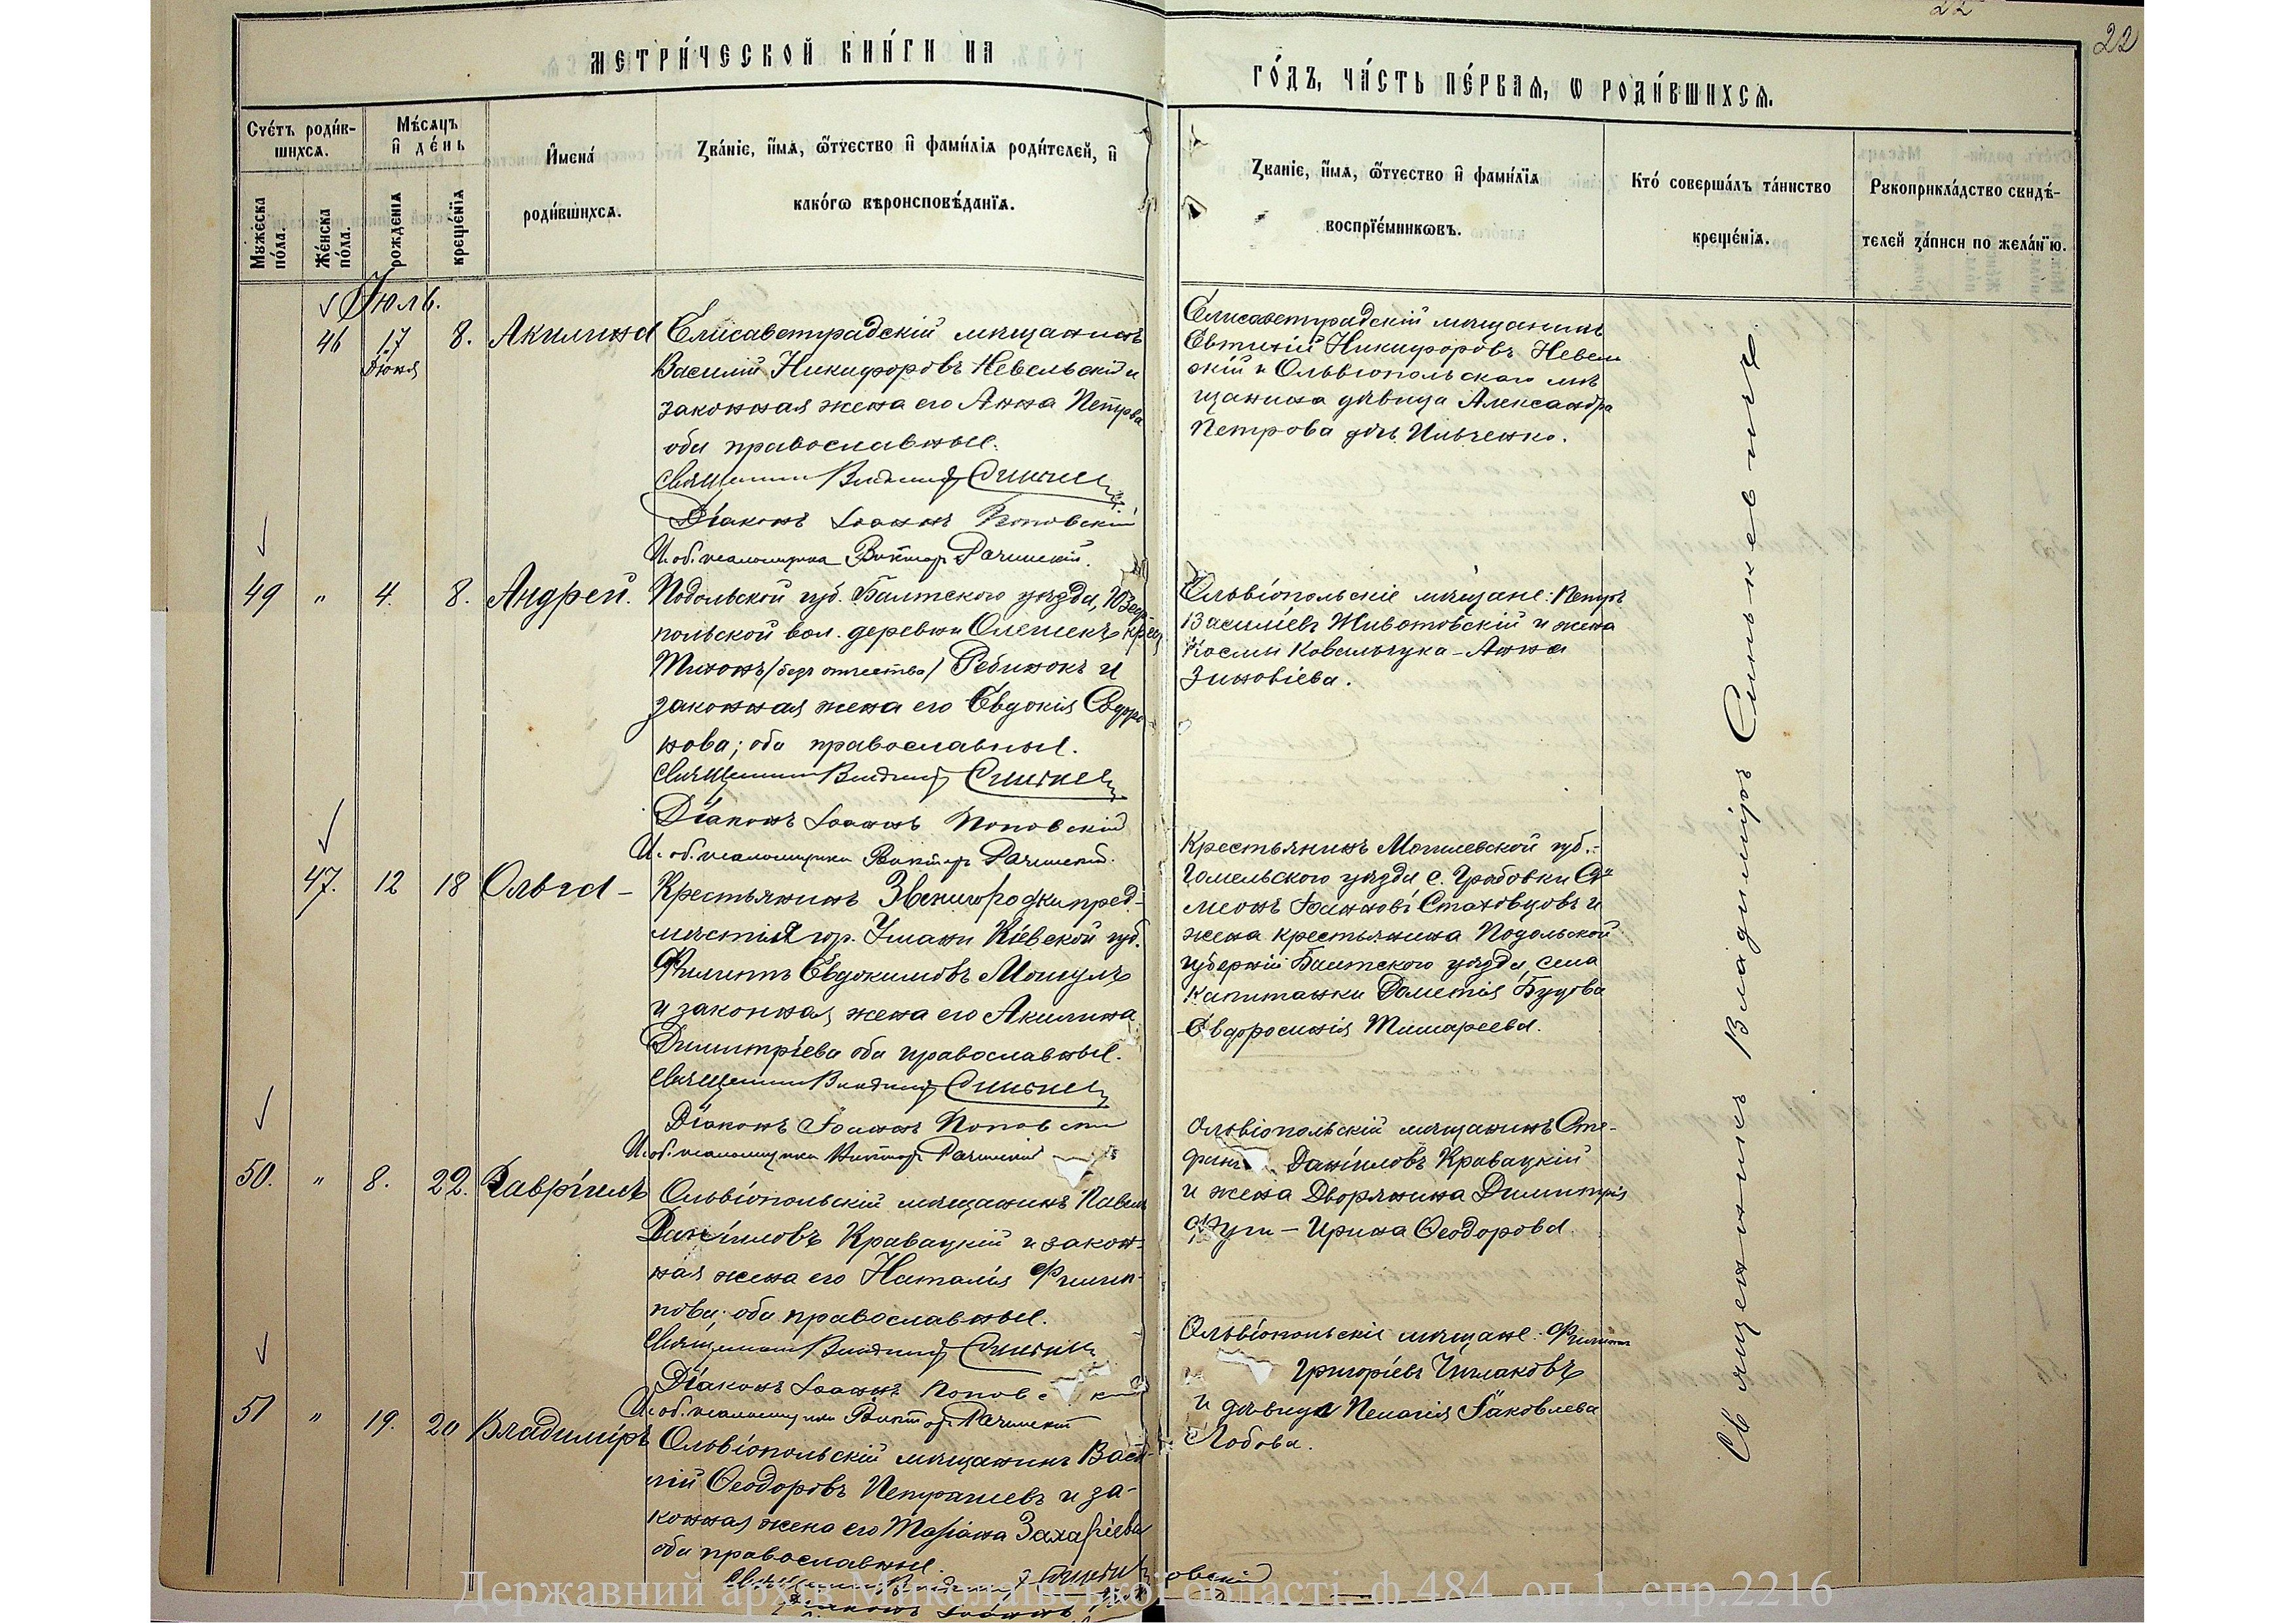 22
22
МЕТРИ́ЧЕСКОЙ КНИ́ГИ НА
ГО́ДЪ, ЧА́СТЬ ПЕ́РВАѦ, Ѡ РОДИ́ВШИХСѦ.
Сче́тъ роди́в-
шихсѧ.
Мꙋже́ска по́ла.
Же́нска по́ла.
Мѣ́сѧцъ
и҆ де́нь
рожде́нїѧ
креще́нїѧ
И҆мена́
роди́вшихсѧ.
Зва́нїе, и҆́мѧ, ѻ҆́тчество и҆ фами́лїѧ роди́телей, и҆
како́гѡ вѣроисповѣ́данїѧ.
Зва́нїе, и҆́мѧ, ѻ҆́тчество и҆ фами́лїѧ
воспрїе́мникѡвъ.
Кто́ соверша́лъ та́инство
креще́нїѧ.
Рꙋкоприкла́дство свидѣ́-
телей за́писи по жела́нїю.
Іюль.
46 17 Іюня 8. Акилина
Елисаветградскій мѣщанинъ
Василій Никифоровъ Невельскій и
законная жена его Анна Петрова
оба православные.
Священникъ Владиміръ Синькевичъ
Діаконъ Іоаннъ Поповскій
И. об. псаломщика Викторъ Рачинскій.
Елисаветградскій мѣщанинъ
Евтихій Никифоровъ Невель
скій и Ольвіопольскаго мѣ
щанина дѣвица Александра
Петрова дчь Ильченко.
49 " 4. 8. Андрей.
Подольской губ. Балтского уѣзда,
польской вол. деревни Олешекъ кр.
Тихонъ /безъ отчества/ Ребинокъ и
законная жена его Евдокія Софро-
нова; оба православные.
Священникъ Владиміръ Синькевичъ
Діаконъ Іоаннъ Поповскій
И. об. псаломщика Викторъ Рачинскій.
Ольвіопольскіе мѣщане: Петръ
Василіевъ Животовскій и жена
Космы Ковальчука - Анна
Зиновіева.
47. 12 18 Ольга -
Крестьянинъ Звенигородки пред-
мѣстія гор. Умани Кіевской губ.
Филиппъ Евдокимовъ Мошулъ
и законная жена его Акилина
Димитріева оба православные.
Священникъ Владиміръ Синькевичъ
Діаконъ Іоаннъ Поповскій
И. об. псаломщика Викторъ Рачинскій
Крестьянинъ Могилевской губ.
Гомельского уѣзда с. Грабовки Си
меонъ Іоанновъ Стаховцовъ и
жена крестьянина Подольской
губерніи Балтского уѣзда, села
Капитанки Дометія Буцова
Евфросинія Тимофеева.
50. " 8. 22. Гавріилъ
Ольвіопольскій мѣщанинъ Павелъ
Даніиловъ Кравацкій и закон-
ная жена его Наталія Филип-
пова; оба православные.
Священникъ Владиміръ Синькевичъ
Діаконъ Іоаннъ Поповскій
И. об. псаломщика Викторъ Рачинскій
Ольвіопольскій мѣщанинъ Сте-
фанъ Даніиловъ Кравацкій
и жена Дворянина Димитрія
Ѳеодорова
51 " 19. 20 Владиміръ
Ольвіопольскій мѣщанинъ Васи-
лій Ѳеодоровъ Петрашевъ и за-
конная жена его Маріана Захаріева
оба православные.
Священникъ Владиміръ Синькевичъ
Діаконъ Іоаннъ Поповскій
Ольвіопольскіе мѣщане: Филиппъ
Григоріевъ Чиглаковъ
и дѣвица Пелагія Іаковлева
Лобова.
Священникъ Владиміръ Синькевичъ
Державний архів Миколаївської області. ф.484, оп.1, спр.2216